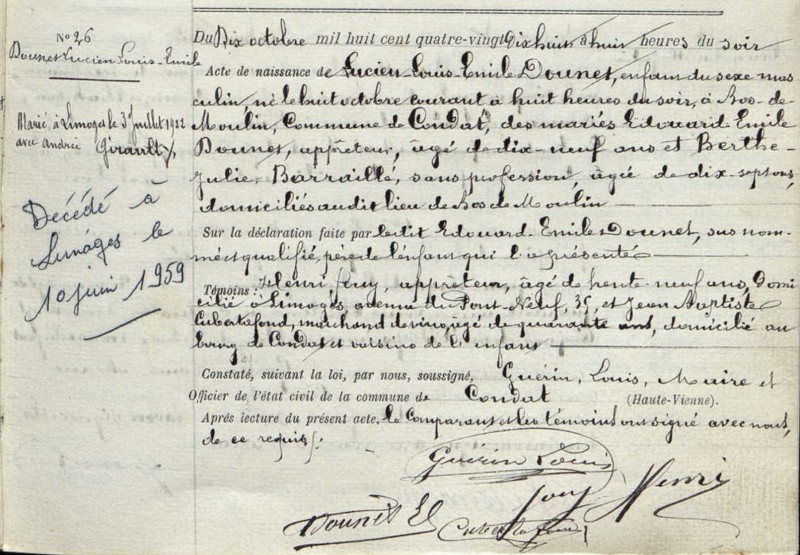 No 26
Dounet Lucien Louis-Emile
Marié à Limoges le 3 juillet 1922
avec Andrée Girault
Décédé à
Limoges le
10 juin 1959
Du Dix octobre mil huit cent quatre-vingt Dix huit à huit heures du soir
Acte de naissance de Lucien-Louis-Emile Dounet, enfant du sexe mas
culin né le huit octobre courant à huit heures du soir, à Bos-de-
Moulin, Commune de Condat, des mariés Edouard Emile
Dounet, apprêteur, âgé de dix-neuf ans et Berthe-
Julie Barraillé, sans profession, âgée de dix-sept ans,
domiciliés audit lieu de Bos de Moulin
Sur la déclaration faite par ledit Edouard-Emile Dounet, sus nom-
mé et qualifié, père de l'enfant qui l'a présenté
Témoins : Henri Jouy, apprêteur, âgé de trente-neuf ans, Domi
cilié à Limoges, avenue du Pont-Neuf, 35, et Jean Baptiste
Cubertafond, marchand de vins, âgé de quarante ans, domicilié au
bourg de Condat et voisins de l'enfant
Constaté, suivant la loi, par nous, soussigné, Guérin, Louis, Maire et
Officier de l'état civil de la commune de Condat (Haute-Vienne).
Après lecture du présent acte, le Comparant et les témoins ont signé avec nous,
de ce requis.
Guérin Louis
Jouy Henri
Dounet E
Cubertafond